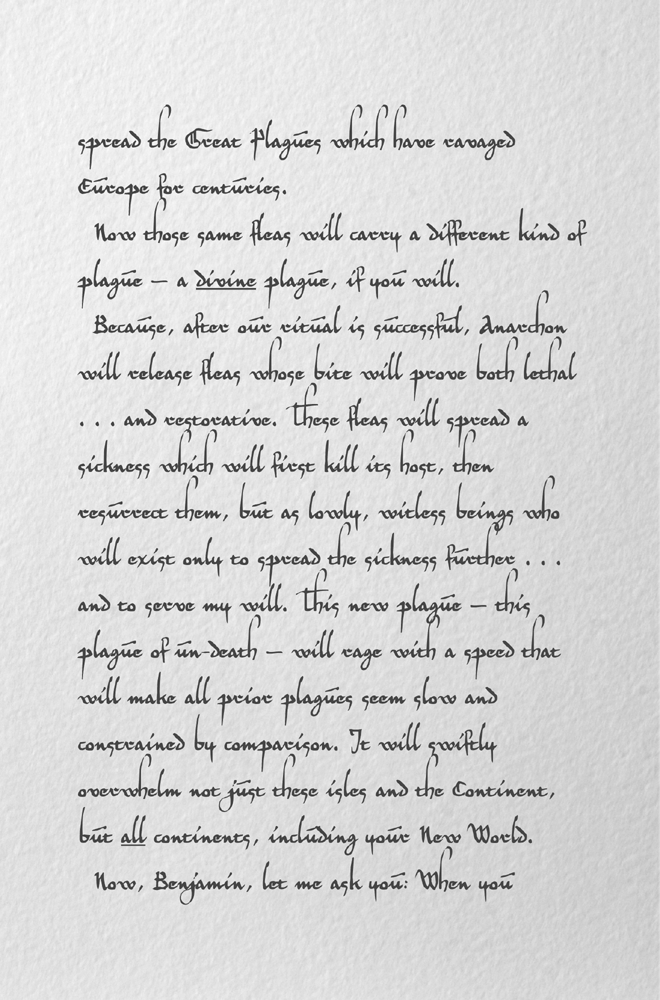 spread the Great Plagues which have ravaged
Europe for centuries.
Now those same fleas will carry a different kind of
plague — a divine plague, if you will.
Because, after our ritual is successful, Anarchon
will release fleas whose bite will prove both lethal
. . . and restorative. These fleas will spread a
sickness which will first kill its host, then
resurrect them, but as lowly, witless beings who
will exist only to spread the sickness further . . .
and to serve my will. This new plague — this
plague of un-death — will rage with a speed that
will make all prior plagues seem slow and
constrained by comparison. It will swiftly
overwhelm not just these isles and the Continent,
but all continents, including your New World.
Now, Benjamin, let me ask you: When you